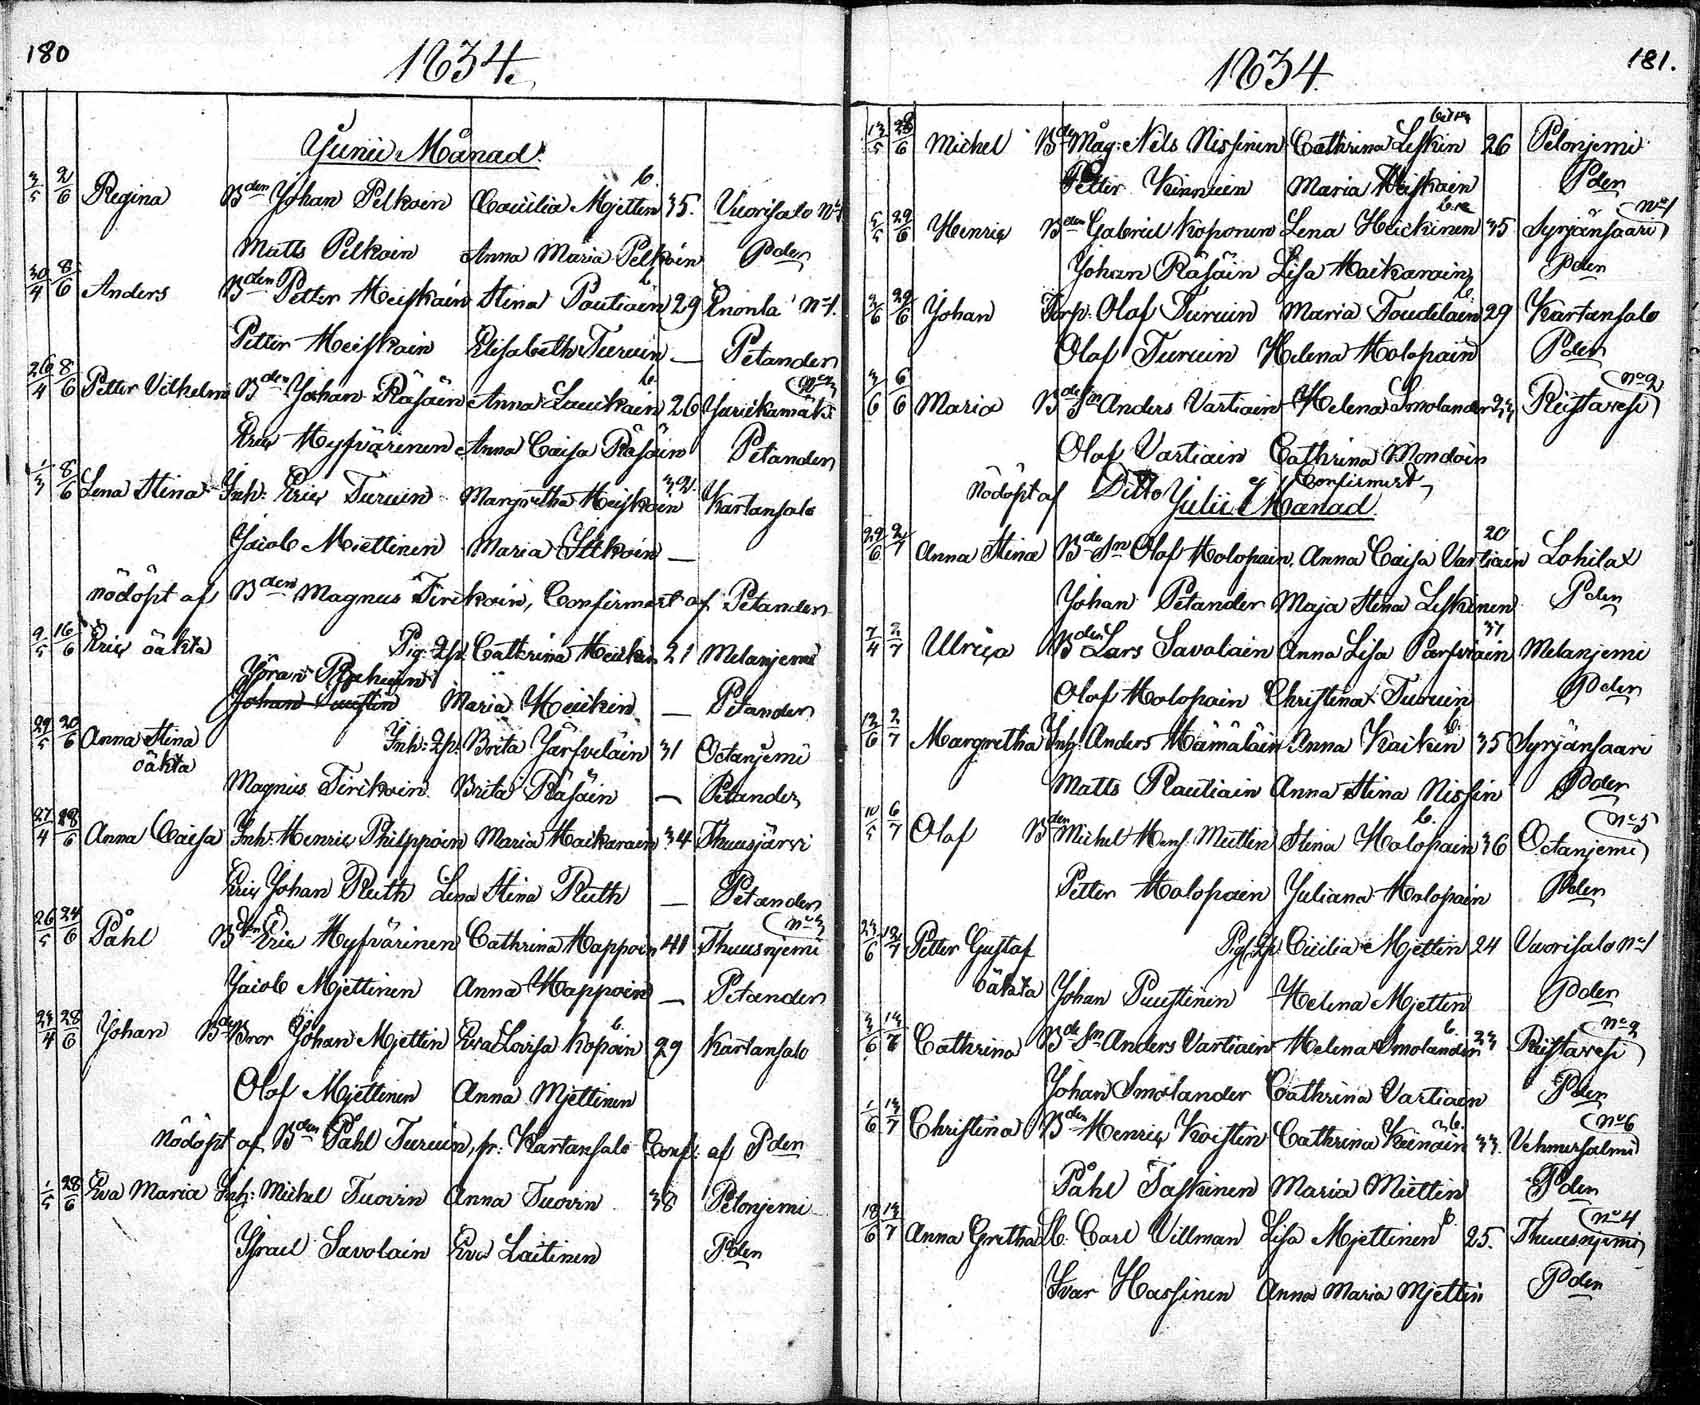 180
1834.
Junii Månad.
3/5 2/6 Regina Bden Johan Pelkoin Caecilia Mjettin 35. Vuorisalo No 1
Matts Pelkoin Anna Maria Pelkoin Pden
30/4 8/6 Anders Bden Petter Heiskain Stina Pautiain 29 Enonla No 1.
Petter Heiskain Elisabeth Turuin — Petander
26/4 8/6 Petter Vilhelm Bden Johan Räsäin Anna Lauikain 26 Jurickamäki
Eric Hyfvärinen Anna Caisa Räsäin Petander
1/3 8/6 Lena Stina Inh: Eric Turuin Margretha Heiskain 32. Kartansalo
Jacob Miettinen Maria Silkoin —
nödöpt af Bden Magnus Tirikoin, Confirmert af Petander
9/5 16/6 Eric oäkta Pig: Cathrina Heickin 21 Melanjemi
Jöran
Johan Puustin Maria Heickin — Petander
29/5 20/6 Anna Stina Inh: Brita Järfveläin 31 Octanjemi
oäkta
Magnus Tirikoin Brita Räsäin — Petander
27/4 28/6 Anna Caisa Inh: Henric Philppoin Maria Haikarain 34 Thuusjärvi
Eric Johan Ruth Lena Stina Ruth — Petander
26/5 24/6 Påhl Bden Eric Hyfvärinen Cathrina Happoin 41 Thuusnjemi No 3
Jacob Mjettinen Anna Happoin — Petander
24/4 28/6 Johan Bde Bror Johan Mjettin Eva Lovisa Kopoin b. 29 Kartansalo
Olof Mjettinen Anna Mjettinen
Nödöpt af Bden Påhl Turuin, fr: Kartansalo Conf: af Pden
1/5 28/6 Eva Maria Inh: Michel Tuovin Anna Tuovin 38 Pelonjemi
Israel Savolain Eva Laitinen Pden
1834.
181.
13/5 28/6 Michel Bde Måg: Nils Nissinen Cathrina Leskin 26 Pelonjemi
Petter Kinnuin Maria Heiskain Pden
5/5 29/6 Henric Bden Gabriel Koponen Lena Heickinen 35 Syrjänsaari No 1
Johan Räsäin Lisa Haikarain Pden
2/6 29/6 Johan Torp: Olof Turuin Maria Toudelain 29 Kartansalo
Olof Turuin Helena Holopain Pden
3/6 6/6 Maria Bde Sn Anders Vartiain Helena Smolander 23 Riistavesi No 2
Olof Vartiain Cathrina Mondoin
nödöpt af Ditto Confirmert
Julii Månad
29/6 2/7 Anna Stina Bde Sn Olof Holopain, Anna Caisa Vartiain 20 Lohilax
Johan Petander Maja Stina Leskinen Pden
7/4 2/7 Ulrica Bden Lars Savolain Anna Lisa Parfviain 37 Melanjemi
Olof Holopain Christina Turuin Pden
12/6 2/7 Margretha Inh: Anders Hämäläin Anna Kaikuin 35 Syrjänsaari
Matts Rautiain Anna Stina Nissin Pden
10/5 6/7 Olof Bden Michel Miettin Stina Holopain b. 36 Octanjemi No 5
Petter Holopain Juliana Holopain Pden
24/6 12/7 Petter Gustaf Pig: Cicilia Mjettin 24 Vuorisalo No 1
oäkta Johan Puustinen Helena Mjettin Pden
3/6 13/7 Cathrina Bde Sn Anders Vartiain Helena Smolander b. 23 Riistavesi No 2
Johan Smolander Cathrina Vartiain Pden
1/6 13/7 Christina Bden Henric Koistin Cathrina Keinain b. 33. Vehmersalmi No 6
Påhl Taskinen Maria Miettin Pden
18/6 13/7 Anna Gretha Carl Villman Lisa Mjettinen 25. Thuusnjemi No 4
Ivar Hassinen Anna Maria Mjettin Pden